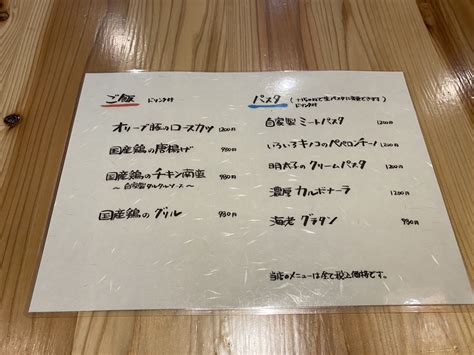 ご飯 ドリンク付
オリーブ豚のロースカツ 1200円
国産鶏の唐揚げ 980円
国産鶏のチキン南蛮 980円
～自家製タルタルソース～
国産鶏のグリル 980円
パスタ
ドリンク付
自家製ミートパスタ 1200円
いろいろキノコのペペロンチーノ 1200円
明太子のクリームパスタ 1200円
濃厚カルボナーラ 1200円
海老グラタン 980円
当店のメニューは全て税込価格です。